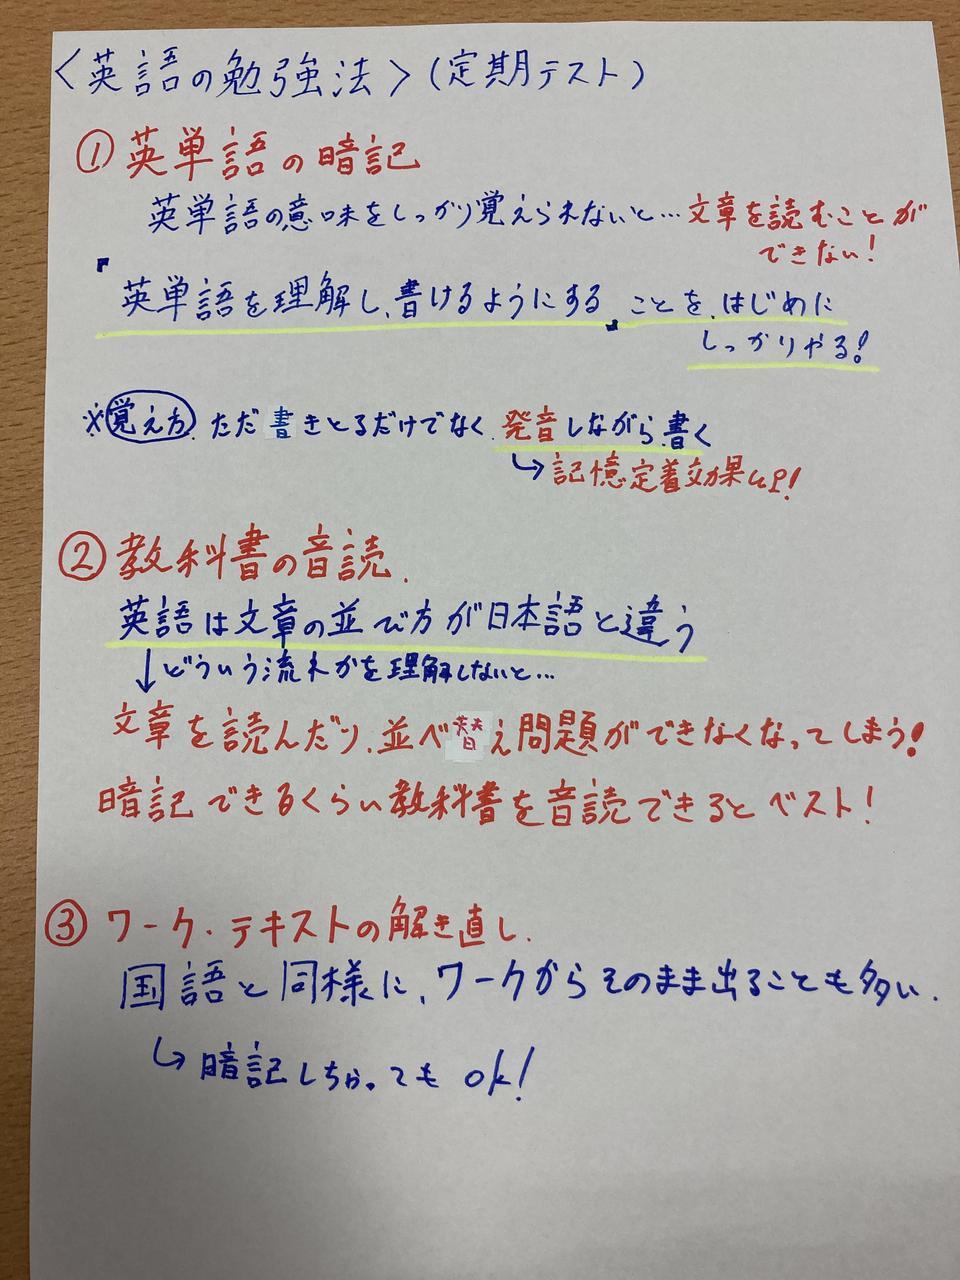 〈英語の勉強法〉(定期テスト)
① 英単語の暗記
英単語の意味をしっかり覚えられないと…文章を読むことが
できない!
「英単語を理解し、書けるようにする」ことを、はじめに
しっかりやる!
※覚え方、ただ書きとるだけでなく、発音しながら、書く
↳記憶定着効果UP!
② 教科書の音読.
英語は文章の並び方が日本語と違う
↓どういう流れかを理解しないと…
文章を読んだり、並べ替え問題ができなくなってしまう!
暗記できるくらい教科書を音読できるとベスト!
③ ワーク・テキストの解き直し.
国語と同様に、ワークからそのまま出ることも多い.
↳暗記しちゃってもok!